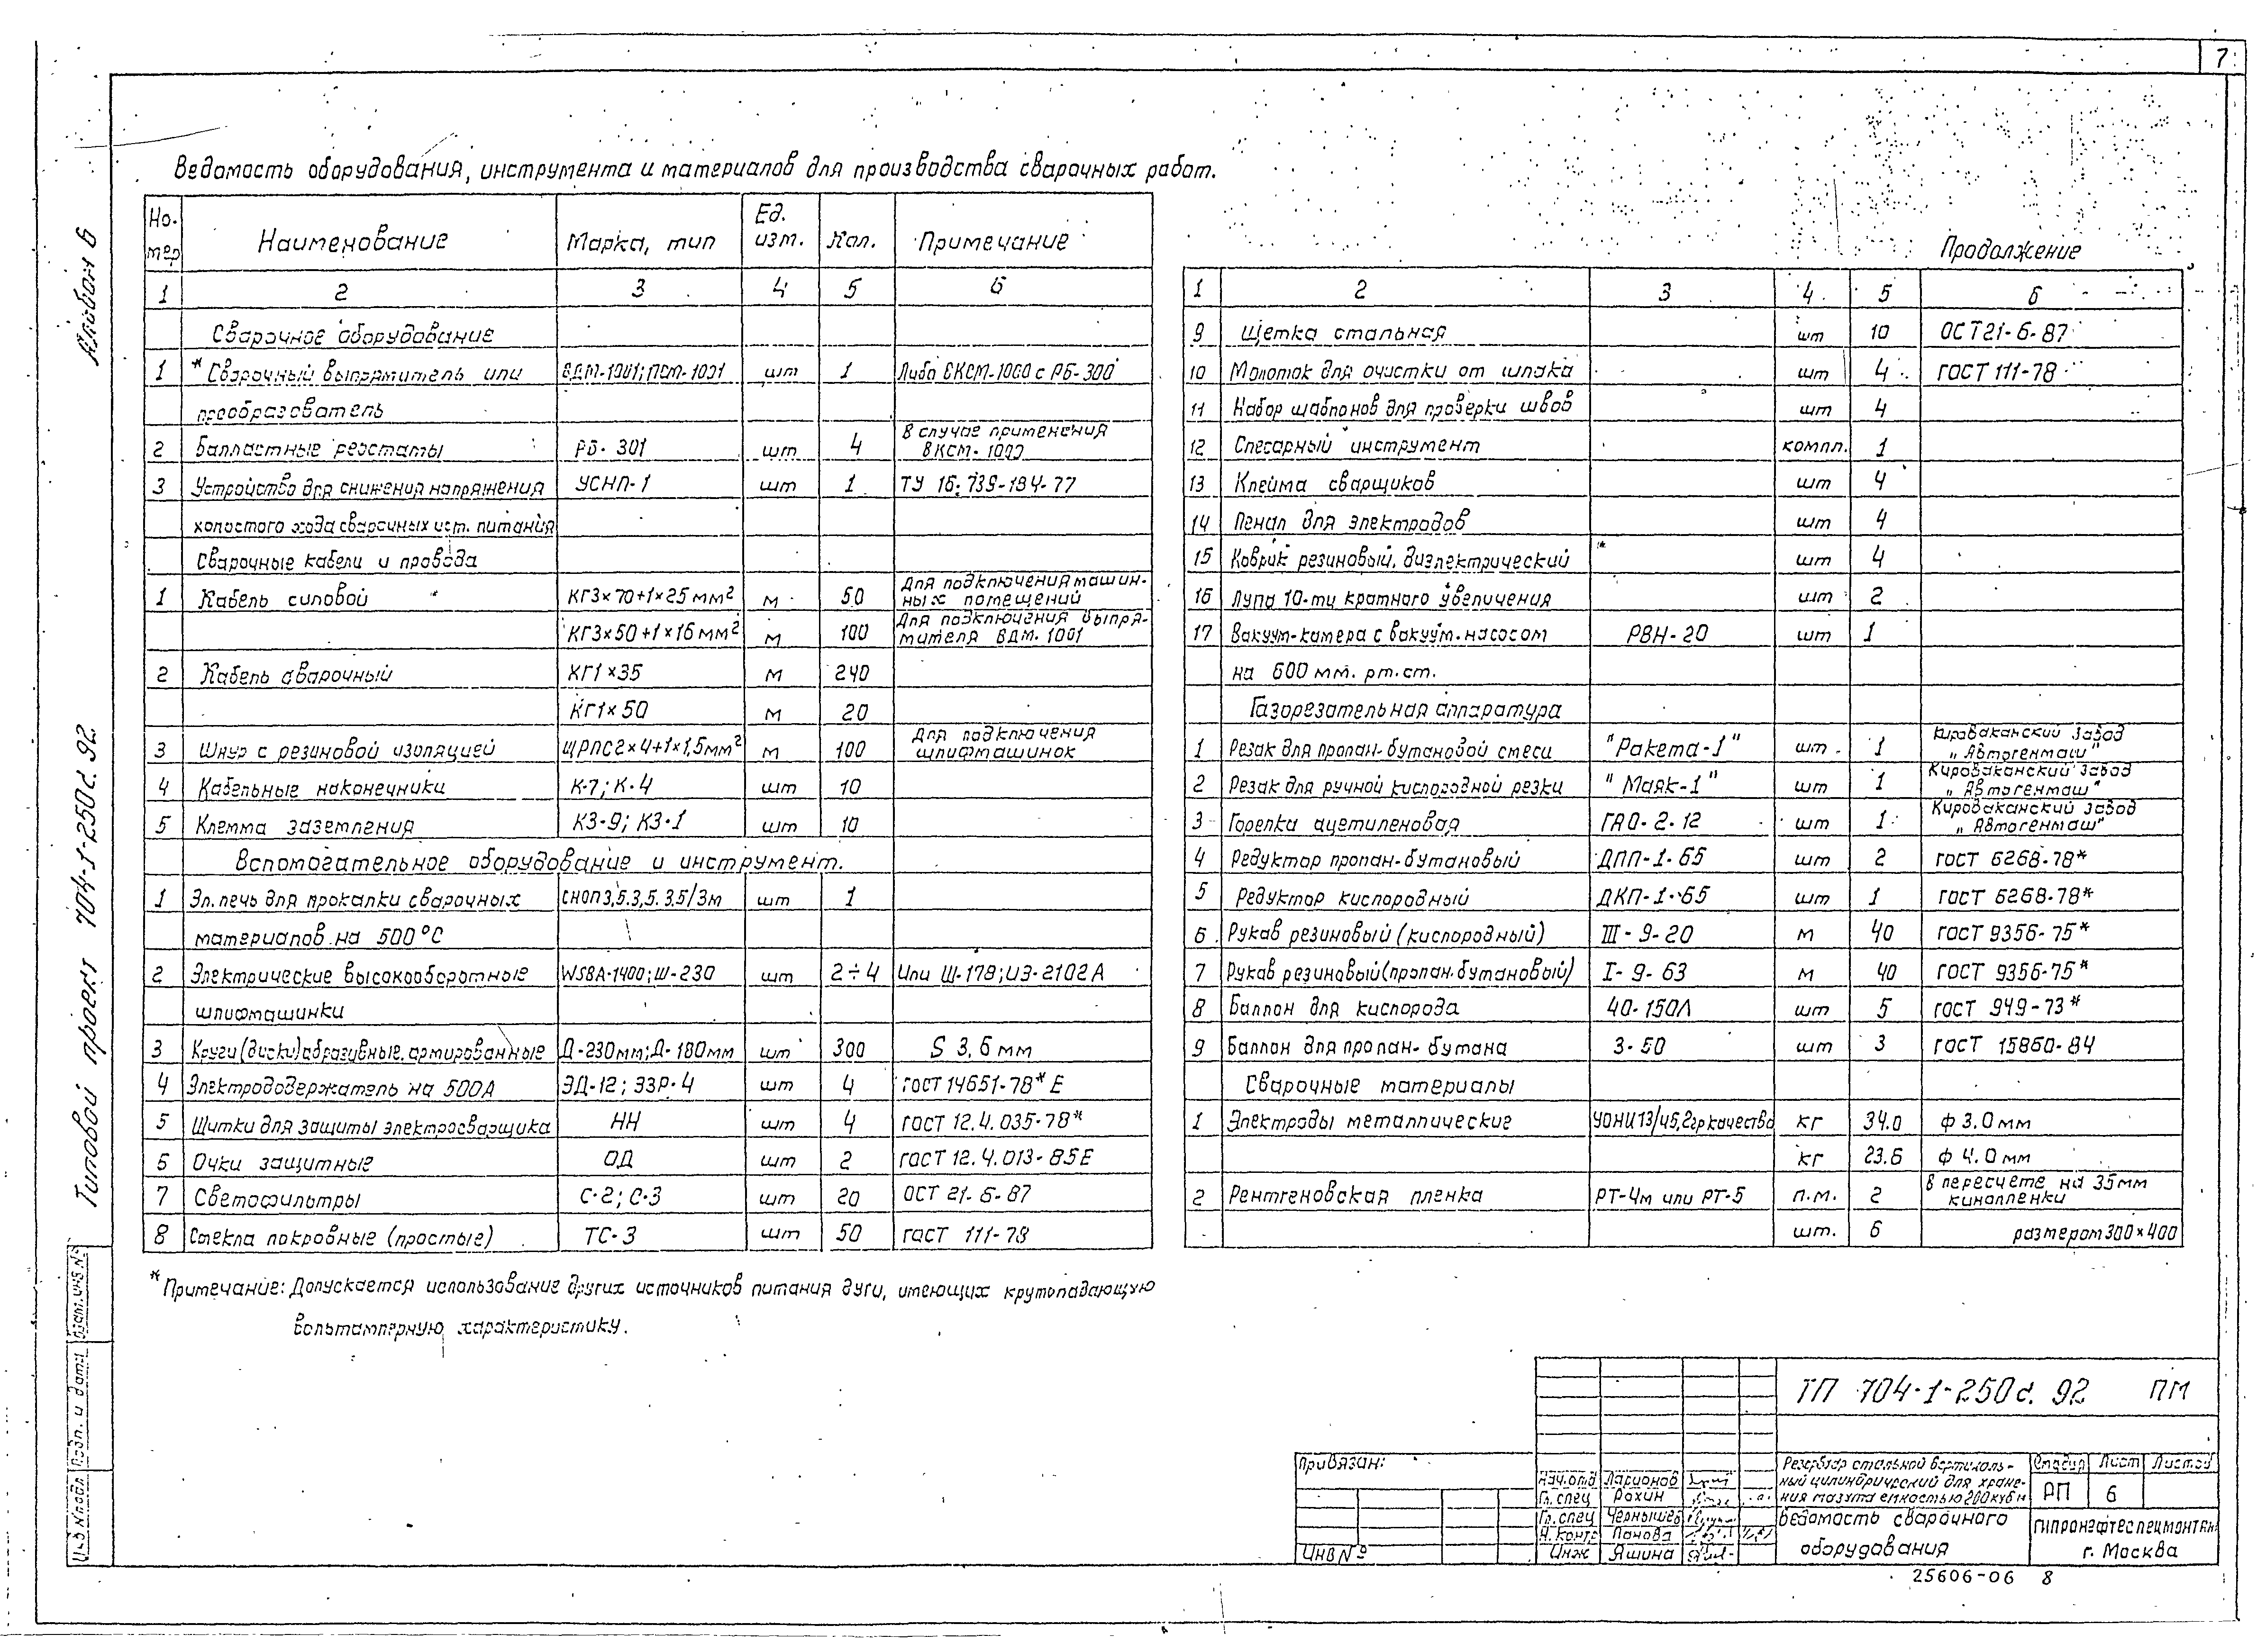 7
Альбом 6
Типовой проект 704-1-250с.92
Ведомость оборудования, инструмента и материалов для производства сварочных работ.
Но-мер | Наименование | Марка, тип | Ед. изм. | Кол. | Примечание
1 | 2 | 3 | 4 | 5 | 6
Сварочное оборудование
1 | * Сварочный выпрямитель или | ВДМ-1001; ПСМ-1001 | шт | 1 | Либо ВКСМ-1000 с РБ-300
преобразователь
2 | Балластные реостаты | РБ-301 | шт | 4 | В случае применения ВКСМ-1000
3 | Устройство для снижения напряжения | УСНП-1 | шт | 1 | ТУ 16.739-184-77
холостого хода сварочных ист. питания
Сварочные кабели и провода
1 | Кабель силовой | КГ3×70+1×25 мм² | м | 50 | Для подключения машин-ных помещений
КГ3×50+1×16 мм² | м | 100 | Для подключения выпря-мителя ВДМ-1001
2 | Кабель сварочный | КГ1×35 | м | 240
КГ1×50 | м | 20
3 | Шнур с резиновой изоляцией | ШРПС2×4+1×1,5мм² | м | 100 | Для подключения шлифмашинок
4 | Кабельные наконечники | К-7; К-4 | шт | 10
5 | Клемма заземления | КЗ-9; КЗ-1 | шт | 10
Вспомогательное оборудование и инструмент.
1 | Эл. печь для прокалки сварочных | СНОП3,5.3,5.3,5/3м | шт | 1
материалов на 500°С
2 | Электрические высокооборотные | WSBA-1400; Ш-230 | шт | 2÷4 | Или Ш-178; ИЭ-2102А
шлифмашинки
3 | Круги (диски) абразивные армированные | Д-230мм; Д-180мм | шт | 300 | S 3,6 мм
4 | Электрододержатель на 500А | ЭД-12; ЭЗР-4 | шт | 4 | ГОСТ 14651-78* Е
5 | Щитки для защиты электросварщика | НН | шт | 4 | ГОСТ 12.4.035-78*
6 | Очки защитные | ОД | шт | 2 | ГОСТ 12.4.013-85Е
7 | Светофильтры | С-2; С-3 | шт | 20 | ОСТ 21-6-87
8 | Стекла покровные (простые) | ТС-3 | шт | 50 | ГОСТ 111-78
* Примечание: Допускается использование других источников питания дуги, имеющих крутопадающую
вольтамперную характеристику.
Продолжение
1 | 2 | 3 | 4 | 5 | 6
9 | Щетка стальная | шт | 10 | ОСТ 21-6-87
10 | Молоток для очистки от шлака | шт | 4 | ГОСТ 111-78
11 | Набор шаблонов для проверки швов | шт | 4
12 | Слесарный инструмент | компл. | 1
13 | Клейма сварщиков | шт | 4
14 | Пенал для электродов | шт | 4
15 | Коврик резиновый, диэлектрический | шт | 4
16 | Лупа 10-ти кратного увеличения | шт | 2
17 | Вакуум-камера с вакуум. насосом | РВН-20 | шт | 1
на 600 мм. рт. ст.
Газорезательная аппаратура
1 | Резак для пропан-бутановой смеси | "Ракета-1" | шт | 1 | Кироваканский завод „Автогенмаш"
2 | Резак для ручной кислородной резки | "Маяк-1" | шт | 1 | Кироваканский завод „Автогенмаш"
3 | Горелка ацетиленовая | ГАО-2-12 | шт | 1 | Кироваканский завод „Автогенмаш"
4 | Редуктор пропан-бутановый | ДПП-1-65 | шт | 2 | ГОСТ 6268-78*
5 | Редуктор кислородный | ДКП-1-65 | шт | 1 | ГОСТ 6268-78*
6 | Рукав резиновый (кислородный) | III-9-20 | м | 40 | ГОСТ 9356-75*
7 | Рукав резиновый (пропан-бутановый) | I-9-63 | м | 40 | ГОСТ 9356-75*
8 | Баллон для кислорода | 40-150Л | шт | 5 | ГОСТ 949-73*
9 | Баллон для пропан-бутана | 3-50 | шт | 3 | ГОСТ 15860-84
Сварочные материалы
1 | Электроды металлические | УОНИ13/45, 2гр качества | кг | 34.0 | ф 3.0 мм
кг | 23.6 | ф 4.0 мм
2 | Рентгеновская пленка | РТ-4м или РТ-5 | п.м. | 2 | В пересчете на 35мм кинопленки
шт. | 6 | размером 300×400
ТП 704-1-250с.92 ПМ
Привязан:
Инв №
Нач. отд Ларионов
Гл. спец Рохин
Гл. спец Чернышев
Н. контр Панова
Инж Яшина
Резервуар стальной вертикаль-
ный цилиндрический для хране-
ния мазута емкостью 200 куб м
Стадия | Лист | Листов
РП | 6
Ведомость сварочного
оборудования
Гипронефтеспецмонтаж
г. Москва
25606-06 8
Взам. инв №
Подп. и дата
Инв № подл